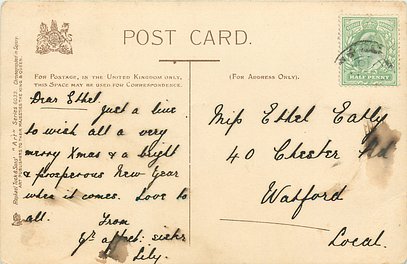 POST CARD.
FOR POSTAGE, IN THE UNITED KINGDOM ONLY,
THIS SPACE MAY BE USED FOR CORRESPONDENCE.
(FOR ADDRESS ONLY).
Dear Ethel
Just a line
to wish all a very
merry Xmas & a bright
& prosperous New Year
when it comes. Love to
all.
From
yr affect: sister
Lily.
Miss Ethel Eatly
40 Chester Rd
Watford
Local.
HALF PENNY
Raphael Tuck & Sons' "Art" Series
ART PUBLISHERS TO THEIR MAJESTIES THE KING & QUEEN.